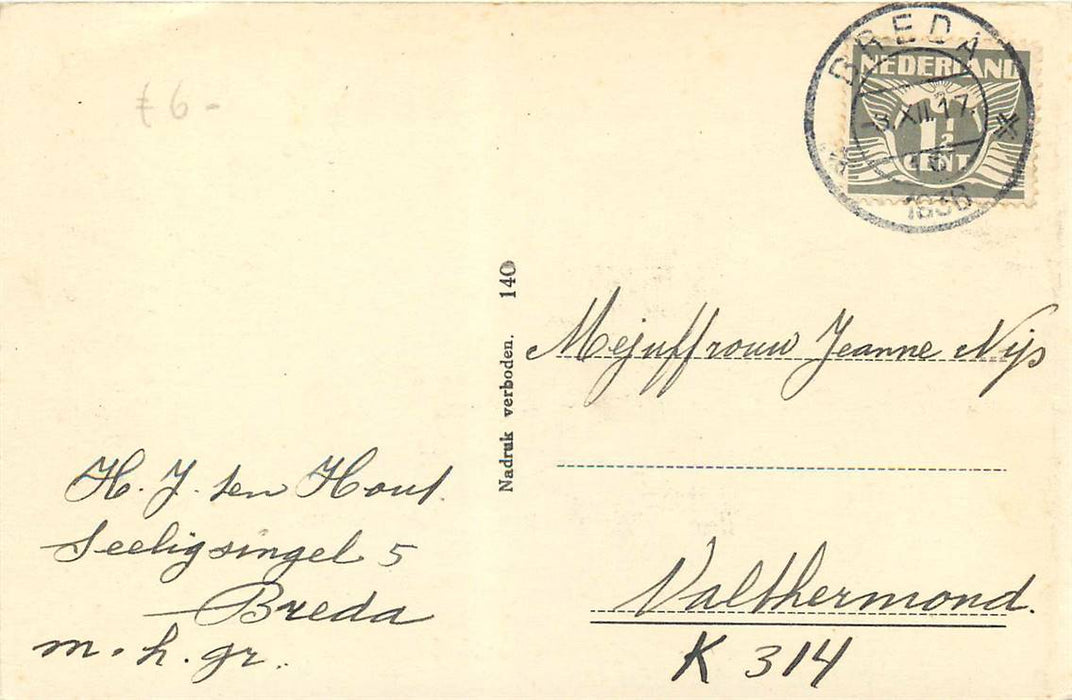 £ 6 -
BREDA
NEDERLAND
XII.17
1½
CENT
1936
Nadruk verboden. 140
Mejuffrouw Jeanne Nijs
H. J. ten Hout.
Seeligsingel 5
Breda
m. h. gr.
Valthermond.
K 314